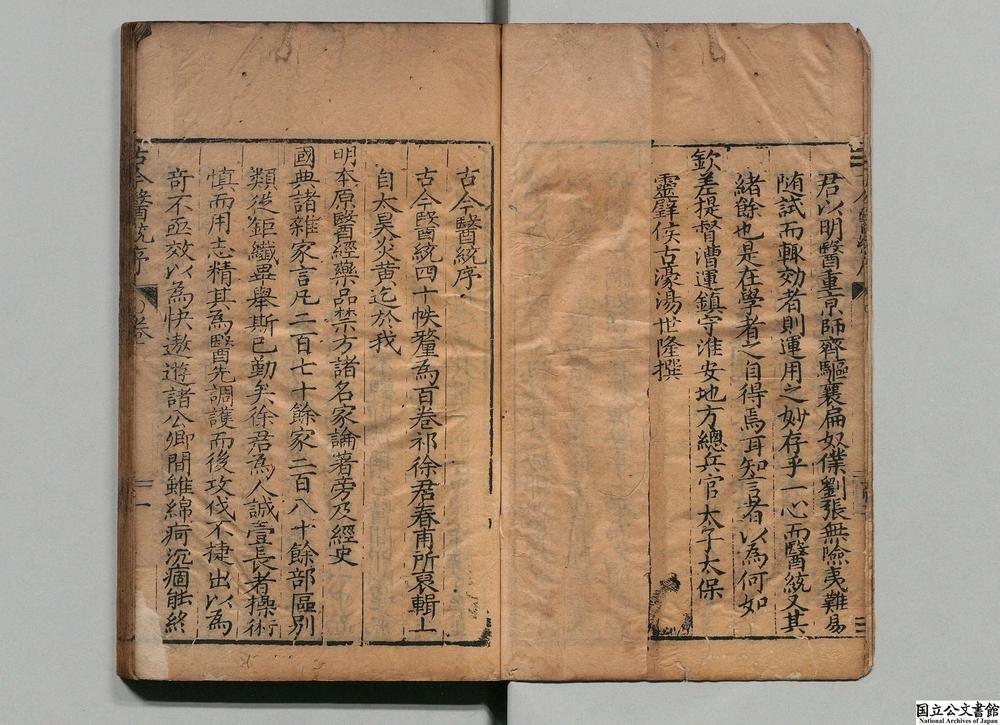 君以明醫重京師齊驅襄扁奴僕劉張無險夷難易
随試而輙効者則運用之妙存乎一心而醫統又其
緒餘也是在學者之自得焉耳知言者以為何如
欽差提督漕運鎮守淮安地方總兵官太子太保
靈璧侯古濠湯世隆撰
古今醫統序
古今醫統四十帙釐為百卷祁徐君春甫所裒輯上
自太昊炎黄迄於我
明本原醫經藥品禁方諸名家論著旁及經史
國典諸雜家言凡二百七十餘家二百八十餘部區別
類從鉅纖畢舉斯已勤矣徐君為人誠壹長者操術
慎而用志精其為醫先調護而後攻伐不捷出以為
奇不亟效以為快遨遊諸公卿間雖綿痾沉痼能終
古今醫統序
卷
一
国立公文書館
National Archives of Japan